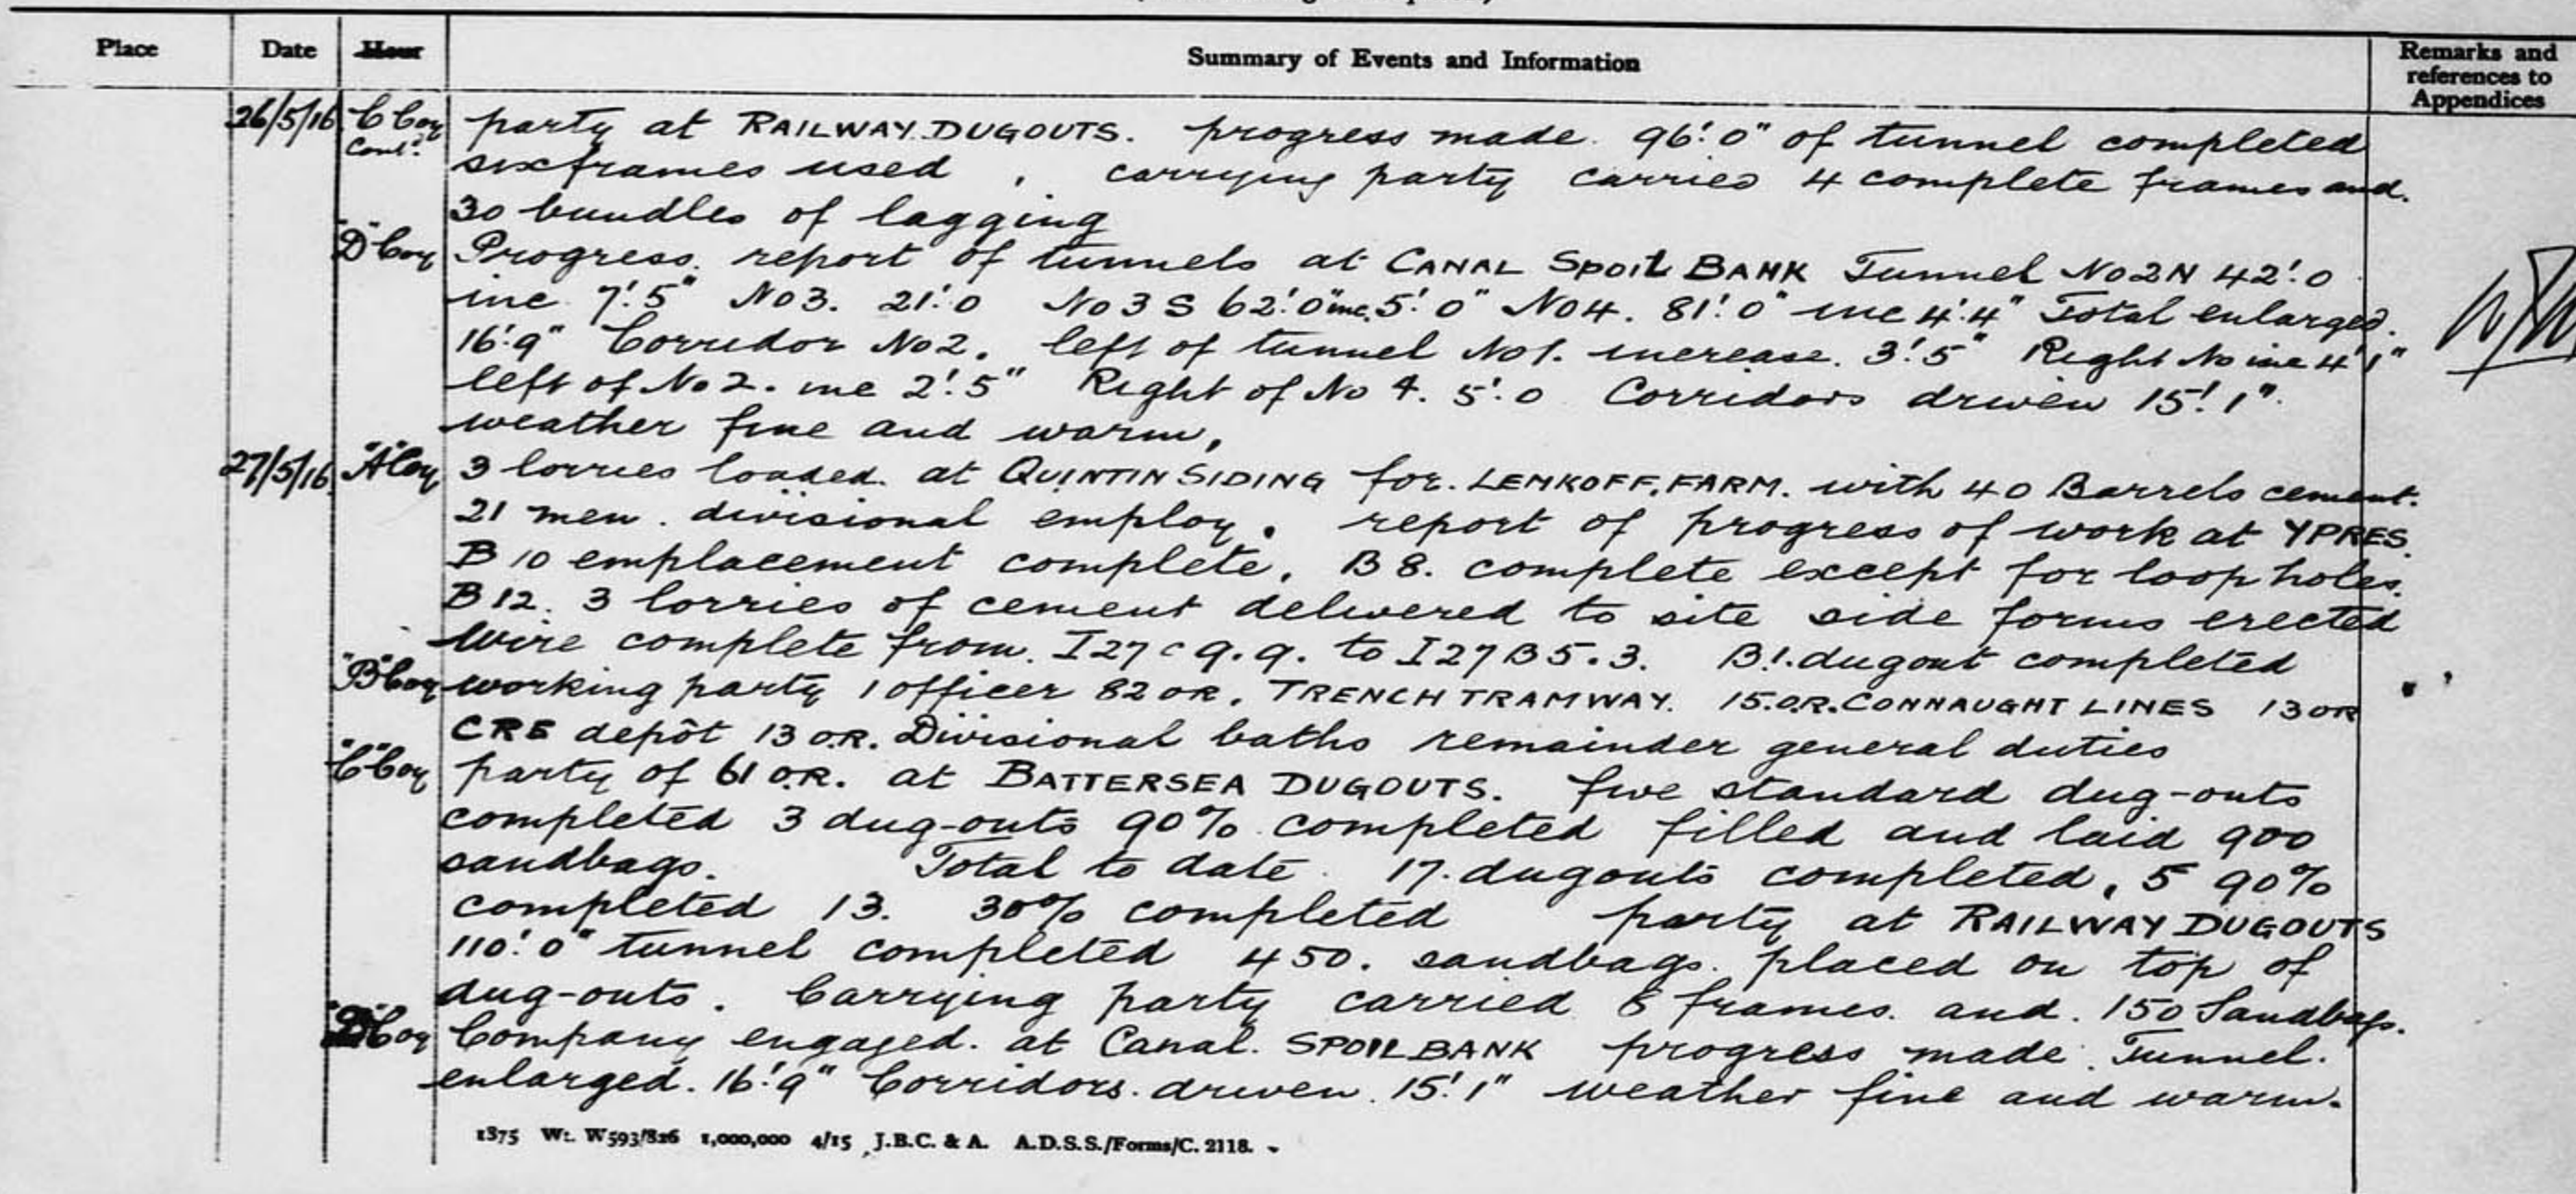 Place Date Hour Summary of Events and Information Remarks and references to Appendices
26/5/16 C Coy Cont. party at RAILWAY DUGOUTS. progress made. 96'.0" of tunnel completed
six frames used , carrying party carried 4 complete frames and.
30 bundles of lagging
"D" Coy Progress. report of tunnels at CANAL SPOIL BANK Tunnel No 2N 42'.0
inc 7'.5" No 3. 21'.0 No 3 S 62'.0" inc. 5'.0" No 4. 81'.0" inc 4'.4" Total enlarged.
16'.9" Corridor No 2. left of tunnel No 1. increase. 3'.5" Right No inc 4'1"
left of No 2. inc 2'.5" Right of No 4. 5'.0 Corridors driven 15'.1".
weather fine and warm.
27/5/16. "A" Coy 3 lorries loaded. at QUINTIN SIDING for. LENKOFF. FARM. with 40 Barrels cement.
21 men. divisional employ. report of progress of work at YPRES.
B 10 emplacement complete. B 8. complete except for loop holes.
B 12. 3 lorries of cement delivered to site side forms erected
wire complete from. I 27 c 9.9. to I 27 B 5.3. B.1. dugout completed
"B" Coy working party 1 officer 82 OR. TRENCH TRAMWAY. 15.O.R. CONNAUGHT LINES 13 OR
CRE depôt 13 O.R. Divisional baths remainder general duties
"C" Coy party of 61 O.R. at BATTERSEA DUGOUTS. five standard dug-outs
completed 3 dug-outs 90% completed filled and laid 900
sandbags. Total to date. 17. dugouts completed. 5 90%
completed 13. 30% completed party at RAILWAY DUGOUTS
110'.0" tunnel completed 450. sandbags. placed on top of
dug-outs. Carrying party carried 8 frames. and. 150 Sandbags.
"D" Coy Company engaged. at Canal. SPOIL BANK progress made. Tunnel.
enlarged. 16'.9" Corridors. driven. 15'.1" weather fine and warm.
1875 Wt. W593/826 1,000,000 4/15 J.B.C. & A. A.D.S.S./Forms/C. 2118.